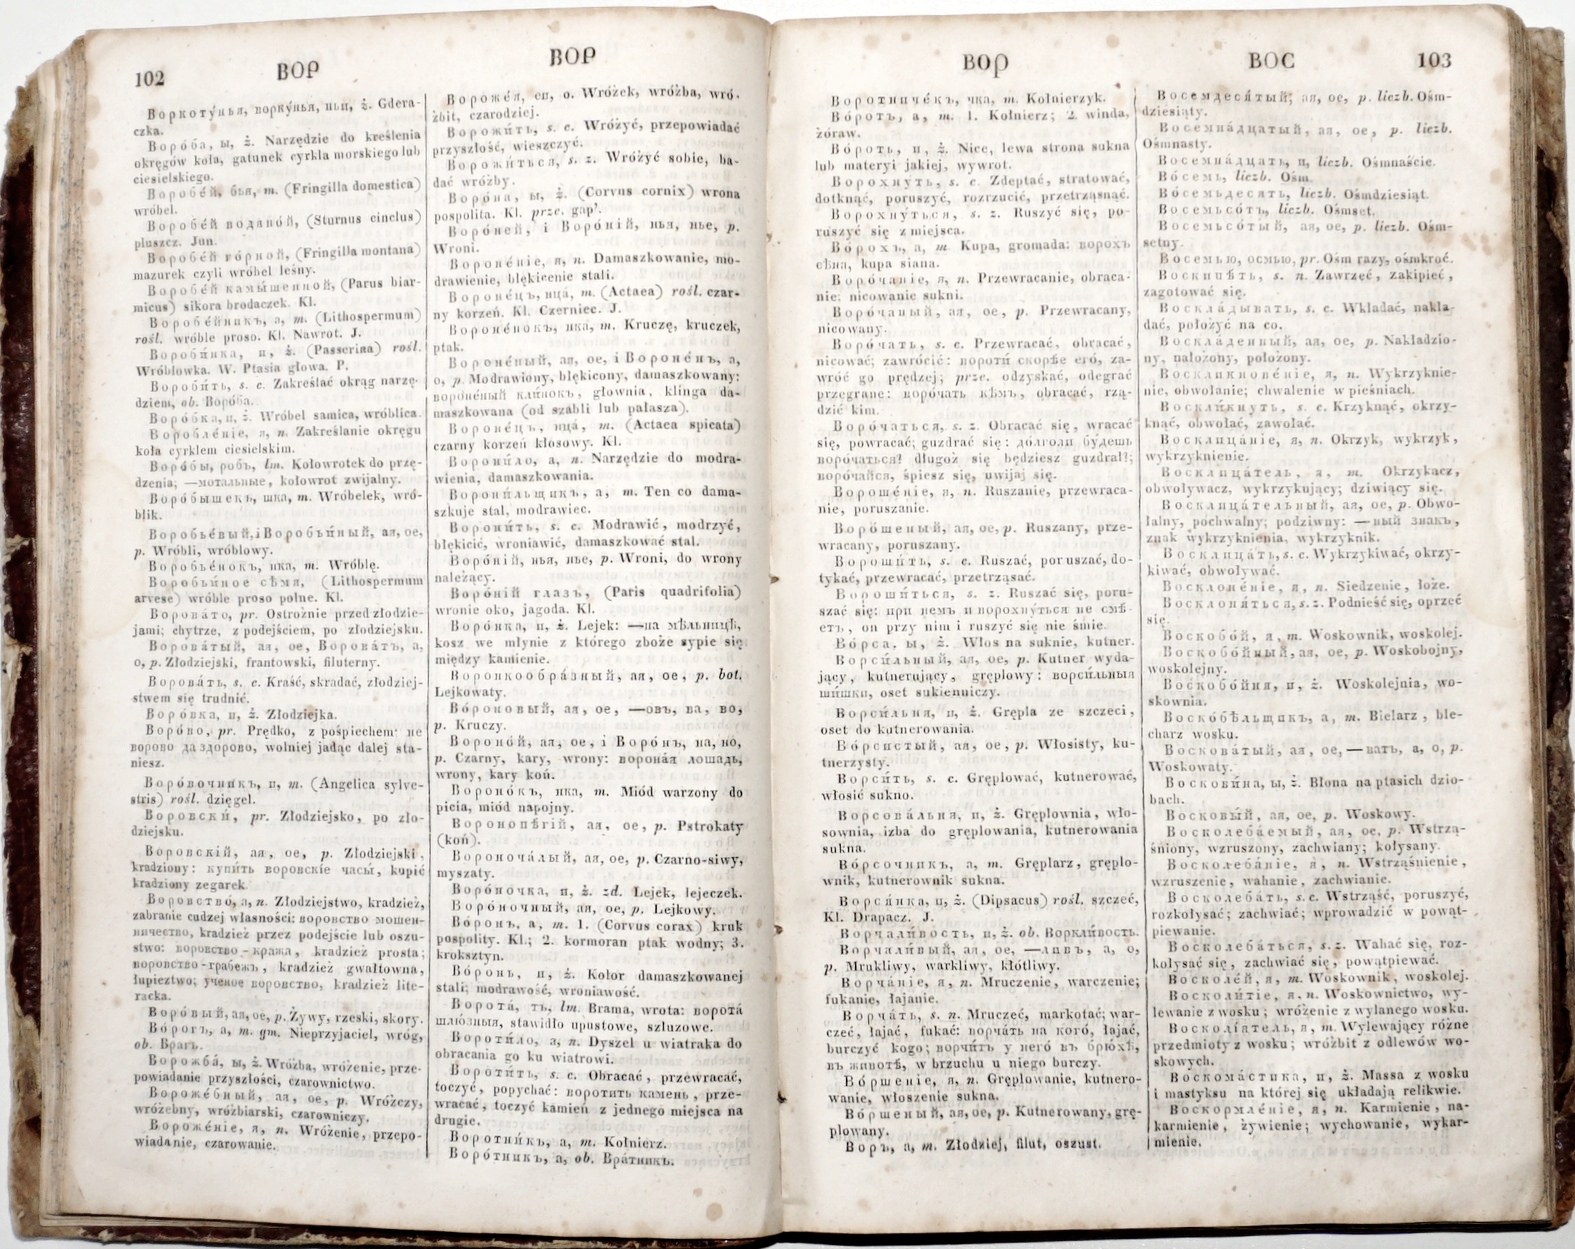 102
ВОР
ВОР
Воркоту́нья, ворку́нья, ньи, ż. Gdera-
czka.
Воро́ба, ы, ż. Narzędzie do kreślenia
okręgów koła, gatunek cyrkla morskiego lub
ciesielskiego.
Воробе́й, бья, m. (Fringilla domestica)
wróbel.
Воробе́й водяно́й, (Sturnus cinclus)
pluszcz. Jun.
Воробе́й го́рной, (Fringilla montana)
mazurek czyli wróbel leśny.
Воробе́й камы́шенной, (Parus biar-
micus) sikora brodaczek. Kl.
Воробе́йникъ, а, m. (Lithospermum)
rośl. wróble proso. Kl. Nawrot. J.
Вороби́нка, и, ż. (Passerina) rośl.
Wróblowka. W. Ptasia głowa. P.
Вороби́ть, s. c. Zakreślać okrąg narzę-
dziem, ob. Воро́ба.
Воро́бка, и, ż. Wróbel samica, wróblica.
Воробле́ніе, я, n. Zakreślanie okręgu
koła cyrklem ciesielskim.
Воро́бы, робъ, lm. Kołowrotek do przę-
dzenia; —мотальные, kołowrot zwijalny.
Воро́бышекъ, шка, m. Wróbelek, wró-
blik.
Воробье́вый, і Воробьи́ный, ая, ое,
p. Wróbli, wróblowy.
Воробье́нокъ, нка, m. Wróblę.
Воробьи́ное сѣмя, (Lithospermum
arvese) wróble proso polne. Kl.
Ворова́то, pr. Ostrożnie przed złodzie-
jami; chytrze, z podejściem, po złodziejsku.
Ворова́тый, ая, ое, Ворова́тъ, а,
о, p. Złodziejski, frantowski, filuterny.
Ворова́ть, s. c. Kraść, skradać, złodziej-
stwem się trudnić.
Воро́вка, и, ż. Złodziejka.
Воро́во, pr. Prędko, z pośpiechem: не
ворово да здорово, wolniej jadąc dalej sta-
niesz.
Воро́вочникъ, и, m. (Angelica sylve-
stris) rośl. dzięgel.
Воровски́, pr. Złodziejsko, po zło-
dziejsku.
Воровскій, ая, ое, p. Złodziejski,
kradziony: купи́ть воровскіе часы́, kupić
kradziony zegarek.
Воровство́, а, n. Złodziejstwo, kradzież,
zabranie cudzej własności: воровство мошен-
ничество, kradzież przez podejście lub oszu-
stwo: воровство-кража, kradzież prosta;
воровство-грабежъ, kradzież gwałtowna,
łupieztwo; ученое воровство, kradzież lite-
racka.
Воро́вый, ая, ое, p. Żywy, rzeski, skory.
Во́рогъ, а, m. gm. Nieprzyjaciel, wróg,
ob. Врагъ.
Ворожба́, ы, ż. Wróżba, wróżenie, prze-
powiadanie przyszłości, czarownictwo.
Вороже́бный, ая, ое, p. Wróżczy,
wróżebny, wróżbiarski, czarowniczy.
Вороже́ніе, я, n. Wróżenie, przepo-
wiadanie, czarowanie.
Вороже́я, еи, o. Wróżek, wróżba, wró-
żbit, czarodziej.
Ворожи́ть, s. c. Wróżyć, przepowiadać
przyszłość, wieszczyć.
Ворожи́ться, s. z. Wróżyć sobie, ba-
dać wróżby.
Воро́на, ы, ż. (Corvus cornix) wrona
pospolita. Kl. prze. gap'.
Воро́ней, і Воро́ній, нья, нье, p.
Wroni.
Вороне́ніе, я, n. Damaszkowanie, mo-
drawienie, błękicenie stali.
Вороне́цъ, нца́, m. (Actaea) rośl. czar-
ny korzeń. Kl. Czerniec. J.
Вороне́нокъ, нка, m. Kruczę, kruczek,
ptak.
Вороне́ный, ая, ое, і Вороне́нъ, а,
о, p. Modrawiony, błękicony, damaszkowany:
вороне́ный кли́нокъ, głownia, klinga da-
maszkowana (od szabli lub pałasza).
Вороне́цъ, нца́, m. (Actaea spicata)
czarny korzeń kłosowy. Kl.
Ворони́ло, а, n. Narzędzie do modra-
wienia, damaszkowania.
Ворони́льщикъ, а, m. Ten co dama-
szkuje stal, modrawiec.
Ворони́ть, s. c. Modrawić, modrzyć,
błękicić, wroniawić, damaszkować stal.
Воро́ній, нья, нье, p. Wroni, do wrony
należący.
Воро́ній глазъ, (Paris quadrifolia)
wronie oko, jagoda. Kl.
Воро́нка, и, ż. Lejek: —на мѣльницѣ,
kosz we młynie z którego zboże sypie się
między kamienie.
Воронкообра́зный, ая, ое, p. bot.
Lejkowaty.
Во́роновый, ая, ое, —овъ, ва, во,
p. Kruczy.
Вороно́й, ая, ое, і Воро́нъ, на, но,
p. Czarny, kary, wrony: вороная́ лошадь,
wrony, kary koń.
Вороно́къ, нка, m. Miód warzony do
picia, miód napojny.
Воронопѣ́гій, ая, ое, p. Pstrokaty
(koń).
Вороноча́лый, ая, ое, p. Czarno-siwy,
myszaty.
Воро́ночка, и, ż. zd. Lejek, lejeczek.
Воро́ночный, ая, ое, p. Lejkowy.
Во́ронъ, а, m. 1. (Corvus corax) kruk
pospolity. Kl.; 2. kormoran ptak wodny; 3.
kroksztyn.
Во́ронь, и, ż. Kolor damaszkowanej
stali; modrawość, wroniawość.
Ворота́, тъ, lm. Brama, wrota: ворота́
шлю́зныя, stawidło upustowe, szluzowe.
Вороти́ло, а, n. Dyszel u wiatraka do
obracania go ku wiatrowi.
Вороти́ть, s. c. Obracać, przewracać,
toczyć, popychać: воротить камень, prze-
wracać, toczyć kamień z jednego miejsca na
drugie.
Воротни́къ, а, m. Kołnierz.
Воро́тникъ, а, ob. Вра́тникъ.
ВОР
ВОС
103
Воротниче́къ, чка, m. Kołnierzyk.
Во́ротъ, а, m. 1. Kołnierz; 2. winda,
żóraw.
Во́роть, и, ż. Nice, lewa strona sukna
lub materyi jakiej, wywrot.
Ворохнуть, s. c. Zdeptać, stratować,
dotknąć, poruszyć, rozrzucić, przetrząsnąć.
Ворохну́ться, s. z. Ruszyć się, po-
ruszyć się z miejsca.
Во́рохъ, а, m. Kupa, gromada: ворохъ
сѣна, kupa siana.
Воро́чаніе, я, n. Przewracanie, obraca-
nie: nicowanie sukni.
Воро́чаный, ая, ое, p. Przewracany,
nicowany.
Воро́чать, s. c. Przewracać, obracać,
nicować; zawrócić: вороти́ скорѣе его́, za-
wróć go prędzej; prze. odzyskać, odegrać
przegrane: воро́чать кѣмъ, obracać, rzą-
dzić kim.
Воро́чаться, s. z. Obracać się, wracać
się, powracać; guzdrać się: до́лголи бу́дешь
воро́чаться? długoż się będziesz guzdrał?;
воро́чайся, śpiesz się, uwijaj się.
Вороше́ніе, я, n. Ruszanie, przewraca-
nie, poruszanie.
Воро́шеный, ая, ое, p. Ruszany, prze-
wracany, poruszany.
Вороши́ть, s. c. Ruszać, poruszać, do-
tykać, przewracać, przetrząsać.
Вороши́ться, s. z. Ruszać się, poru-
szać się: при немъ и ворохну́ться не смѣ-
етъ, on przy nim i ruszyć się nie śmie.
Во́рса, ы, ż. Włos na suknie, kutner.
Ворси́льный, ая, ое, p. Kutner wyda-
jący, kutnerujący, gręplowy: ворси́льныя
ши́шки, oset sukienniczy.
Ворси́льня, и, ż. Grępla ze szczeci,
oset do kutnerowania.
Во́рсистый, ая, ое, p. Włosisty, ku-
tnerzysty.
Ворси́ть, s. c. Gręplować, kutnerować,
włosić sukno.
Ворсова́льня, и, ż. Gręplownia, wło-
sownia, izba do gręplowania, kutnerowania
sukna.
Во́рсочникъ, а, m. Gręplarz, gręplo-
wnik, kutnerownik sukna.
Ворся́нка, и, ż. (Dipsacus) rośl. szczeć,
Kl. Drapacz. J.
Ворчали́вость, и, ż. ob. Воркли́вость.
Ворчали́вый, ая, ое, —ливъ, а, о,
p. Mrukliwy, warkliwy, kłótliwy.
Ворча́ніе, я, n. Mruczenie, warczenie;
fukanie, łajanie.
Ворча́ть, s. n. Mruczeć, markotać; war-
czeć, łajać, fukać: ворча́ть на кого́, łajać,
burczyć kogo; ворчи́тъ у него́ въ брю́хѣ,
въ животѣ, w brzuchu u niego burczy.
Во́ршеніе, я, n. Gręplowanie, kutnero-
wanie, włoszenie sukna.
Во́ршеный, ая, ое, p. Kutnerowany, grę-
plowany.
Воръ, а, m. Złodziej, filut, oszust.
Восемдеся́тый, ая, ое, p. liczb. Ośm-
dziesiąty.
Восемна́дцатый, ая, ое, p. liczb.
Ośmnasty.
Восемна́дцать, и, liczb. Ośmnaście.
Во́семь, liczb. Ośm.
Во́семьдесять, liczb. Ośmdziesiąt.
Восемьсо́тъ, liczb. Ośmset.
Восемьсо́тый, ая, ое, p. liczb. Ośm-
setny.
Во́семью, осмью, pr. Ośm razy, ośmkroć.
Воскипѣ́ть, s. n. Zawrzeć, zakipieć,
zagotować się.
Воскла́дывать, s. c. Wkładać, nakła-
dać, położyć na co.
Воскла́денный, ая, ое, p. Nakładzio-
ny, nałożony, położony.
Воскликнове́ніе, я, n. Wykrzyknie-
nie, obwołanie; chwalenie w pieśniach.
Воскли́кнуть, s. c. Krzyknąć, okrzy-
knąć, obwołać, zawołać.
Восклица́ніе, я, n. Okrzyk, wykrzyk,
wykrzyknienie.
Восклица́тель, я, m. Okrzykacz,
obwoływacz, wykrzykujący; dziwiący się.
Восклица́тельный, ая, ое, p. Obwo-
łalny, pochwalny; podziwny: —ный знакъ,
znak wykrzyknienia, wykrzyknik.
Восклица́ть, s. c. Wykrzykiwać, okrzy-
kiwać, obwoływać.
Восклоне́ніе, я, n. Siedzenie, łoże.
Восклоня́ться, s. z. Podnieść się, oprzeć
się.
Воскобо́й, я, m. Woskownik, woskolej.
Воскобо́йный, ая, ое, p. Woskobojny,
woskolejny.
Воскобо́йня, и, ż. Woskolejnia, wo-
skownia.
Воскобѣ́льщикъ, а, m. Bielarz, ble-
charz wosku.
Воскова́тый, ая, ое, —ватъ, а, о, p.
Woskowaty.
Воскови́на, ы, ż. Błona na ptasich dzio-
bach.
Восковы́й, ая, ое, p. Woskowy.
Восколеба́емый, ая, ое, p. Wstrzą-
śniony, wzruszony, zachwiany; kołysany.
Восколеба́ніе, я, n. Wstrząśnienie,
wzruszenie, wahanie, zachwianie.
Восколеба́ть, s. c. Wstrząść, poruszyć,
rozkołysać; zachwiać; wprowadzić w powąt-
piewanie.
Восколеба́ться, s. z. Wahać się, roz-
kołysać się, zachwiać się, powątpiewać.
Восколе́й, я, m. Woskownik, woskolej.
Восколи́тіе, я, n. Woskownictwo, wy-
lewanie z wosku; wróżenie z wylanego wosku.
Восколія́тель, я, m. Wylewający różne
przedmioty z wosku; wróżbit z odlewów wo-
skowych.
Воскома́стика, и, ż. Massa z wosku
i mastyksu na której się układają relikwie.
Воскормле́ніе, я, n. Karmienie, na-
karmienie, żywienie; wychowanie, wykar-
mienie.